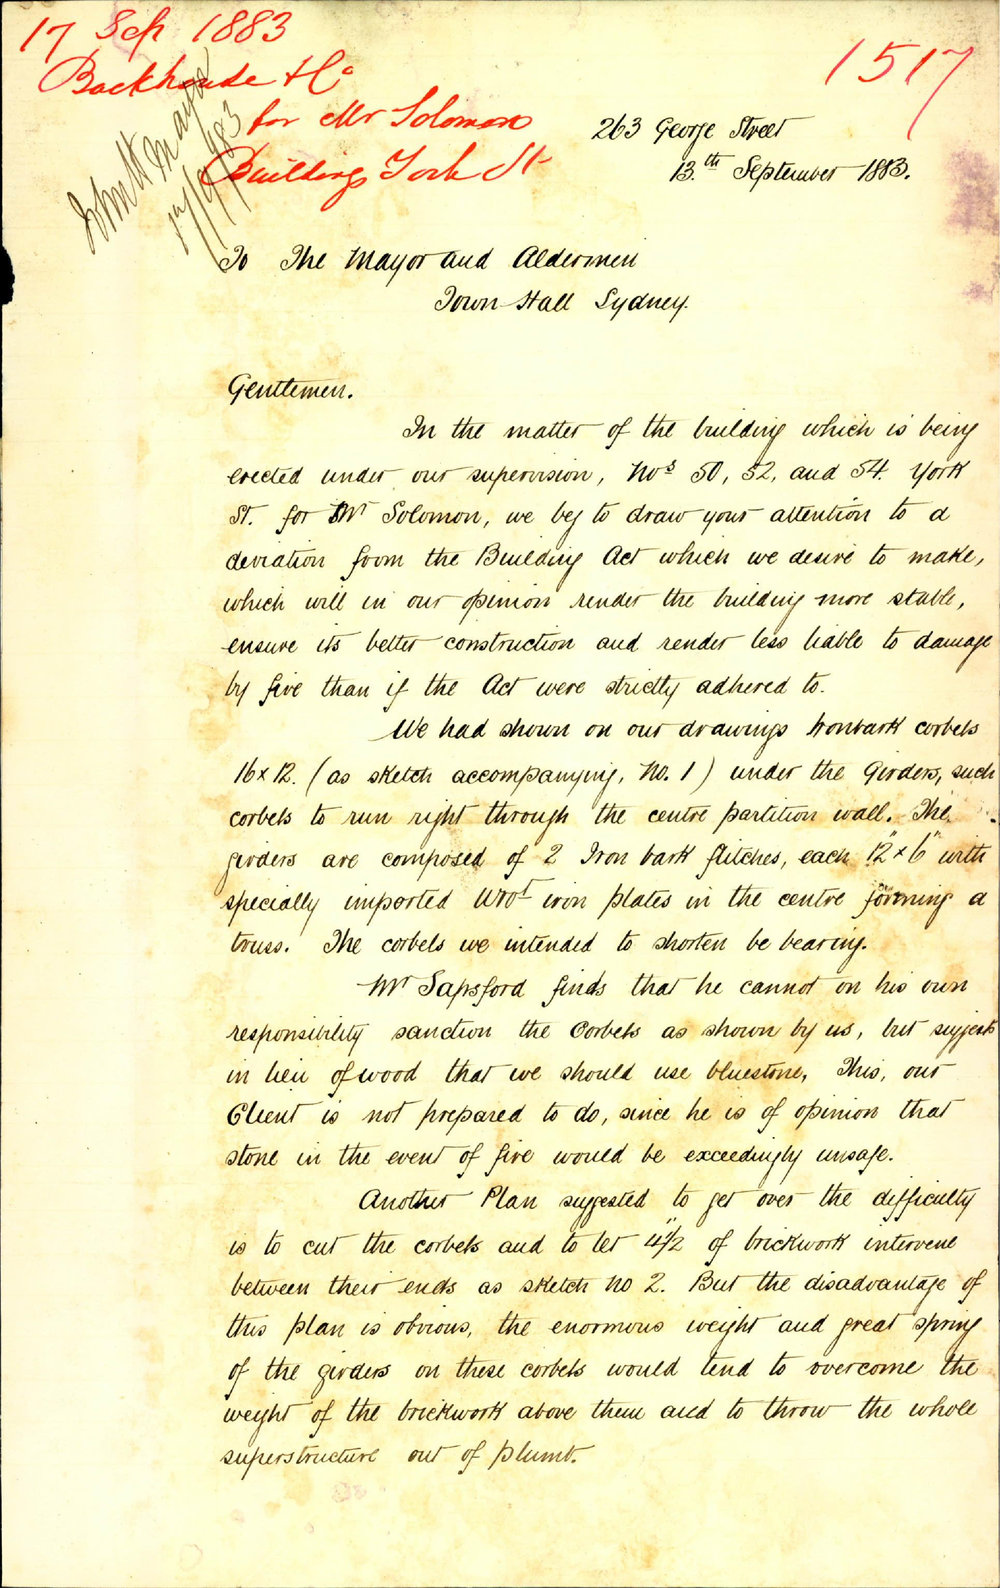 17 Sep 1883
Backhouse & Co
for Mr Solomon
Buildings York St
1517
John H Mayor
17/9/83
263 George Street
13.th September 1883.
To The Mayor and Aldermen
Town Hall Sydney.
Gentlemen.
In the matter of the building which is being
erected under our supervision, Nos 50, 52, and 54. York
St. for Mr Solomon, we beg to draw your attention to a
deviation from the Building Act which we desire to make,
which will in our opinion render the building more stable,
ensure its better construction and render less liable to damage
by fire than if the Act were strictly adhered to.
We had shown on our drawings Ironbark corbels
16 x 12. (as sketch accompanying, No. 1) under the Girders, such
corbels to run right through the centre partition wall. The
girders are composed of 2 Iron bark flitches, each 12" x 6" with
specially imported Wrot iron plates in the centre forming a
truss. The corbels we intended to shorten be bearing.
Mr Sapsford finds that he cannot on his own
responsibility sanction the Corbels as shown by us, but suggests
in lieu of wood that we should use bluestone, This, our
Client is not prepared to do, since he is of opinion that
stone in the event of fire would be exceedingly unsafe.
Another Plan suggested to get over the difficulty
is to cut the corbels and to let 4½" of brickwork intervene
between their ends as sketch No 2. But the disadvantage of
this plan is obvious, the enormous weight and great spring
of the girders on these corbels would tend to overcome the
weight of the brickwork above them and to throw the whole
superstructure out of plumb.